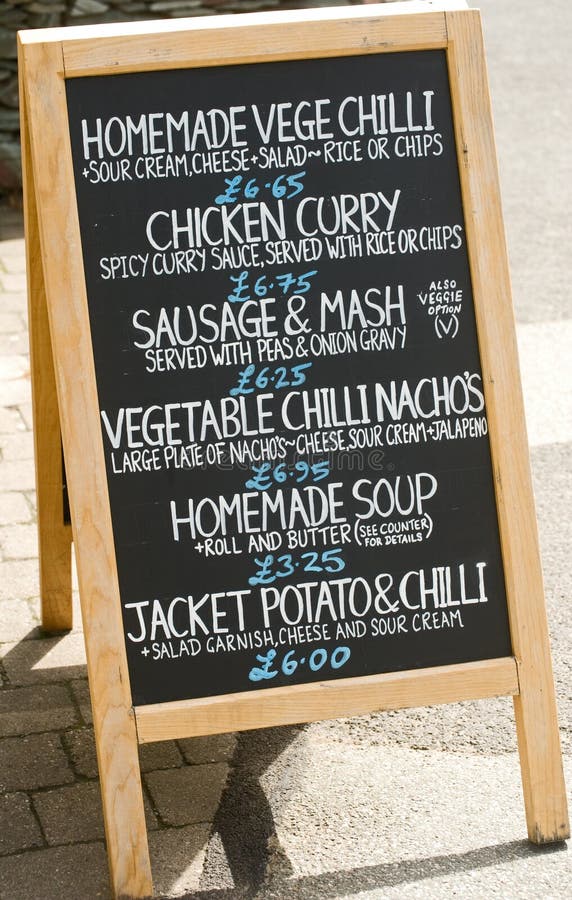 HOMEMADE VEGE CHILLI
+SOUR CREAM, CHEESE+SALAD~RICE OR CHIPS
£6.65
CHICKEN CURRY
SPICY CURRY SAUCE, SERVED WITH RICE OR CHIPS
£6.75
SAUSAGE & MASH
SERVED WITH PEAS & ONION GRAVY
ALSO
VEGGIE
OPTION
(V)
£6.25
VEGETABLE CHILLI NACHO'S
LARGE PLATE OF NACHO'S~CHEESE, SOUR CREAM+JALAPENO
£6.95
HOMEMADE SOUP
+ROLL AND BUTTER (SEE COUNTER
FOR DETAILS)
£3.25
JACKET POTATO & CHILLI
+ SALAD GARNISH, CHEESE AND SOUR CREAM
£6.00
dreamstime.com